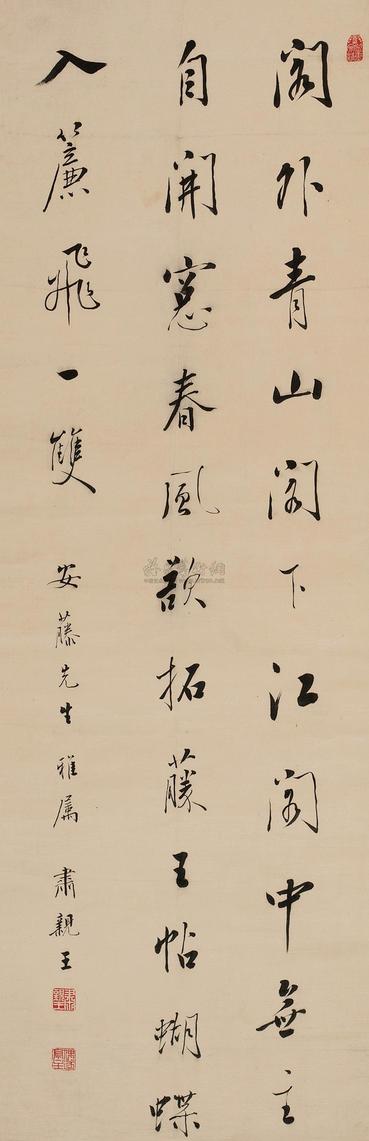 閣外青山閣下江閣中無主
自開窻春風欲拓藤王帖蝴蝶
入簾飛一雙
安藤先生雅属 肅親王